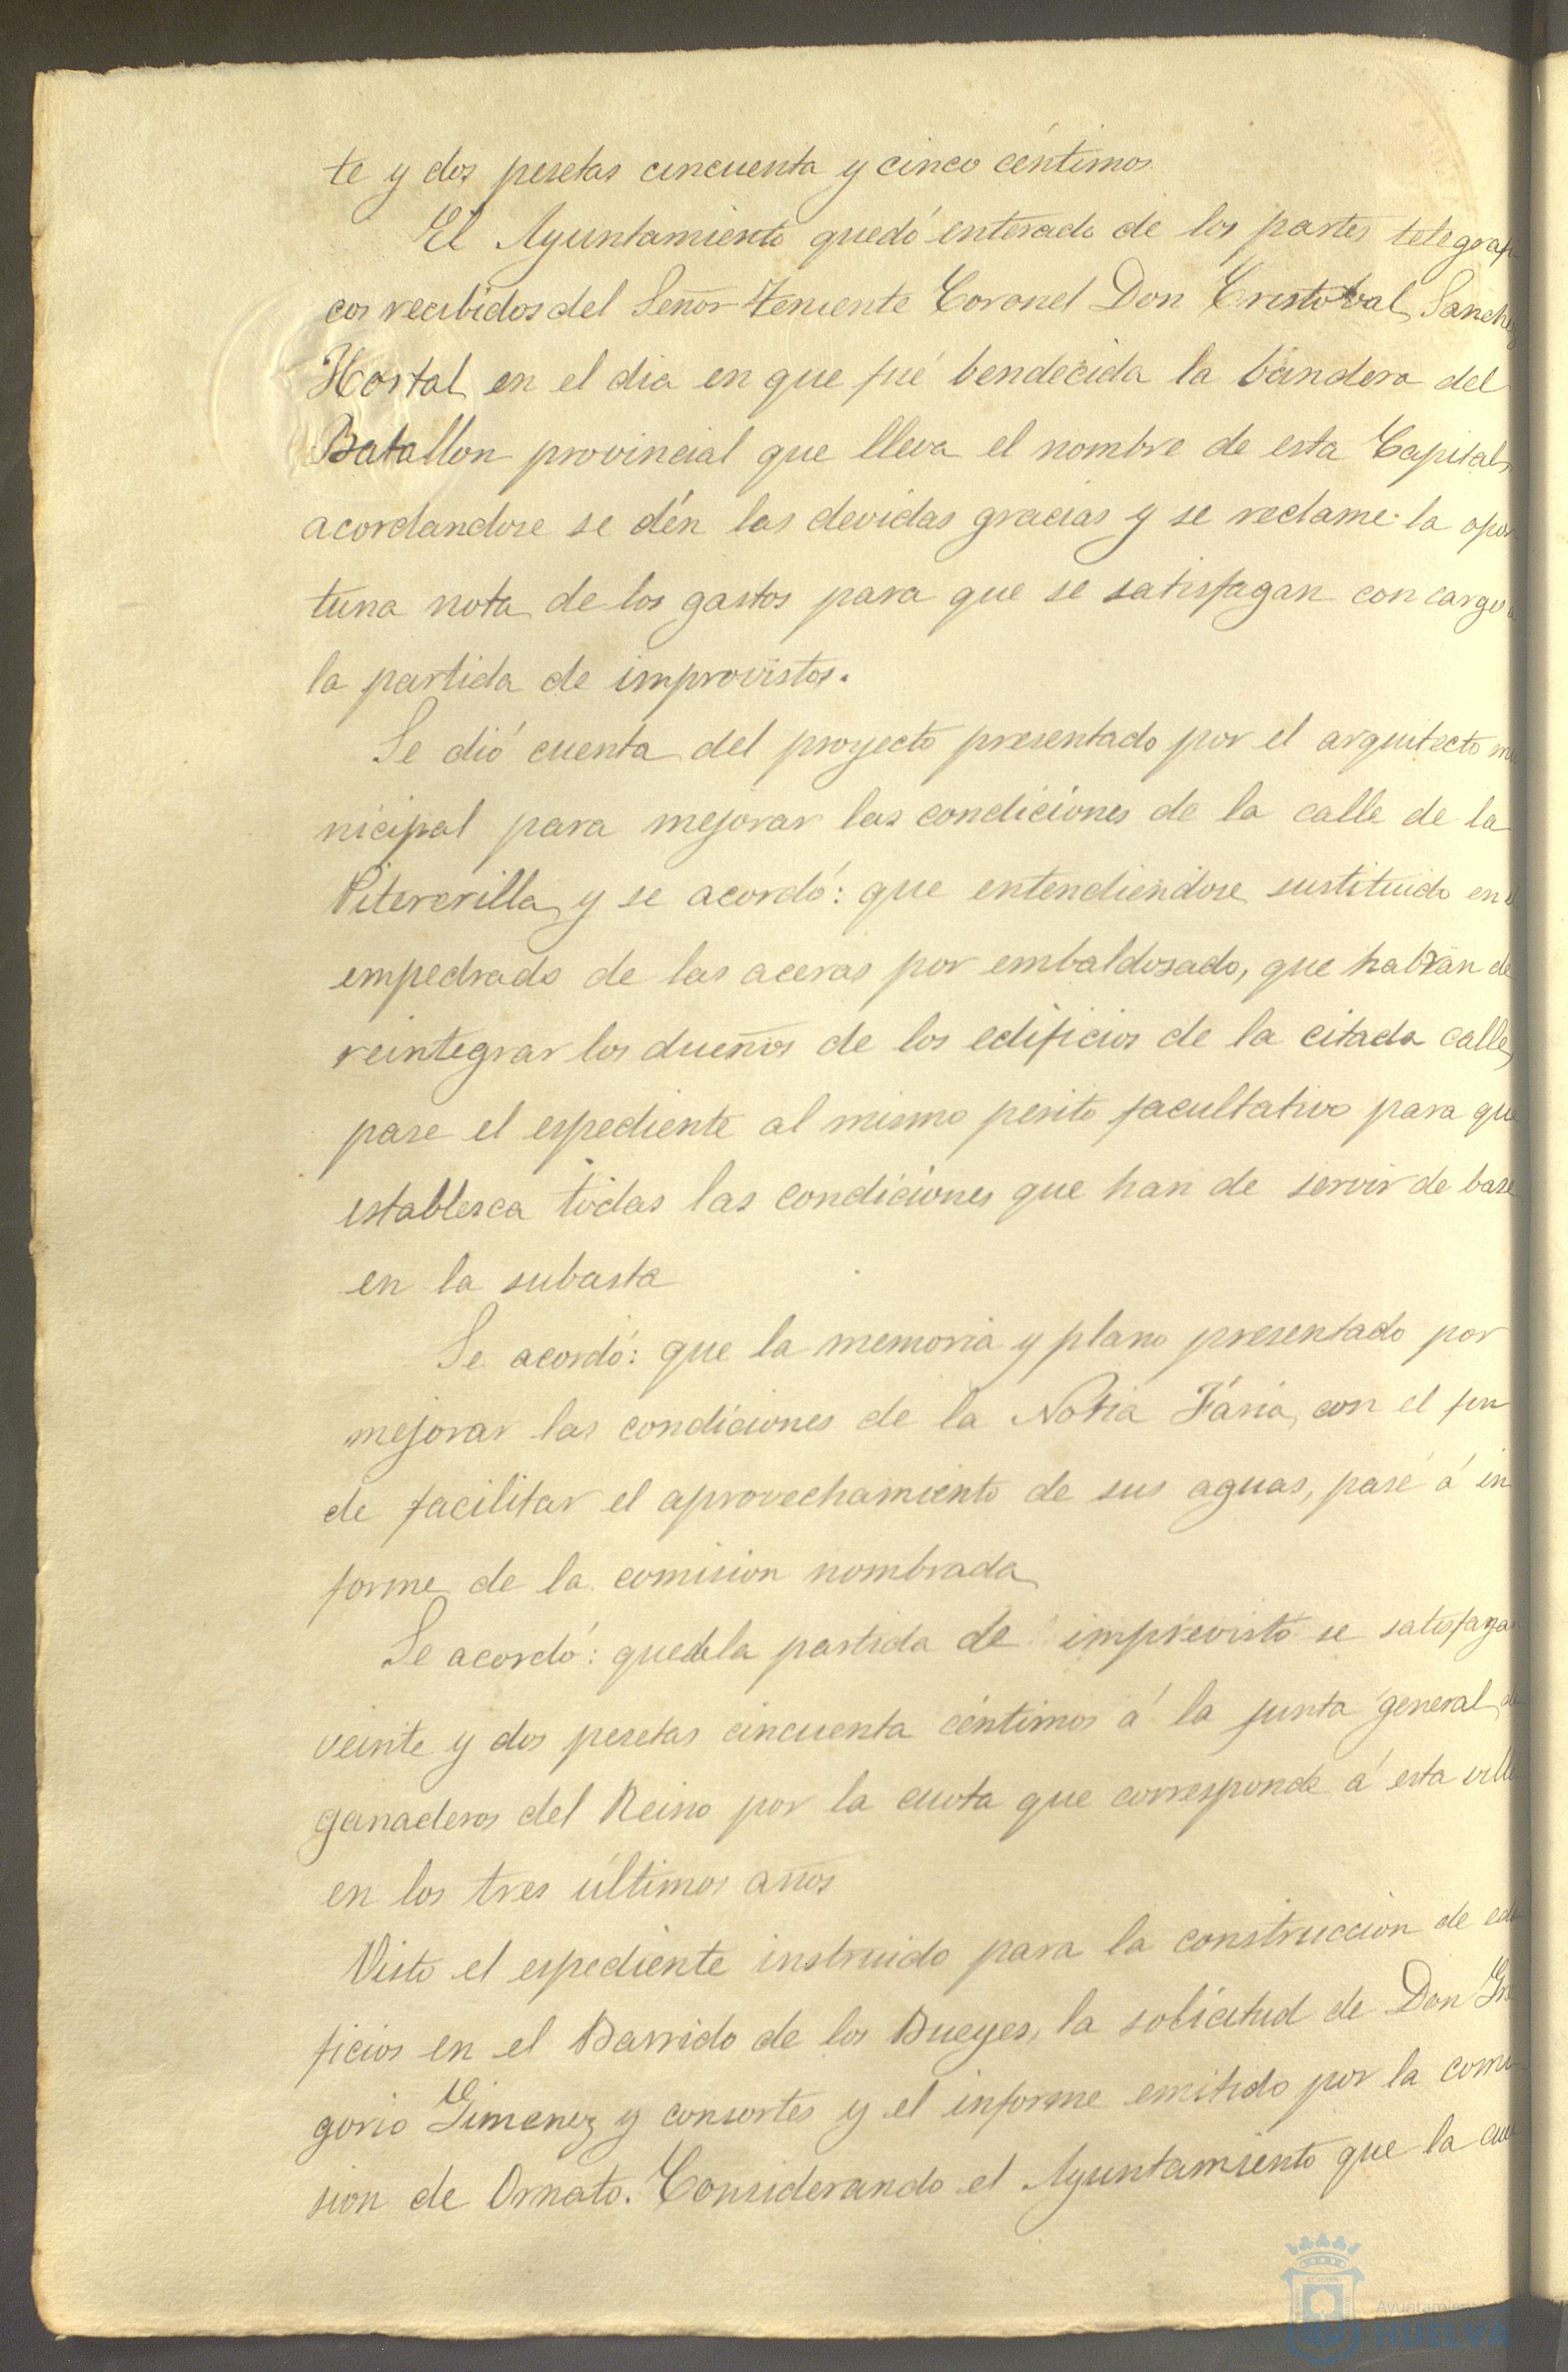 te y dos pesetas cincuenta y cinco céntimos.
El Ayuntamiento quedó enterado de los partes telegrafi
cos recibidos del Señor Teniente Coronel Don Cristobal Sanchez
Hostal en el dia en que fué bendecida la bandera del
Batallon provincial que lleva el nombre de esta Capital,
acordandose se dén las devidas gracias y se reclame la opor
tuna nota de los gastos para que se satisfagan con cargo a
la partida de improvistos.
Se dió cuenta del proyecto presentado por el arquitecto mu
nicipal para mejorar las condiciones de la calle de la
y se acordó: que entendiendose sustituido en el
empedrado de las aceras por embaldosado, que habran de
reintegrar los dueños de los edificios de la citada calle,
pase el espediente al mismo perito facultativo para que
establesca todas las condiciones que han de servir de base
en la subasta
Se acordó: que la memoria y plano presentado por
mejorar las condiciones de la Noria con el fin
de facilitar el aprovechamiento de sus aguas, pase á in
forme de la comision nombrada
Se acordó: que de la partida de imprevisto se satisfagan
veinte y dos pesetas cincuenta céntimos á la junta general de
ganaderos del Reino por la cuota que corresponde á esta villa
en los tres últimos años
Visto el espediente instruido para la construccion de edi
ficios en el Barrido de los Bueyes, la solicitud de Don Gre
gorio Gimenez y consortes y el informe emitido por la comi
sion de Ornato. Considerando el Ayuntamiento que la
Ayuntamiento
HUELVA